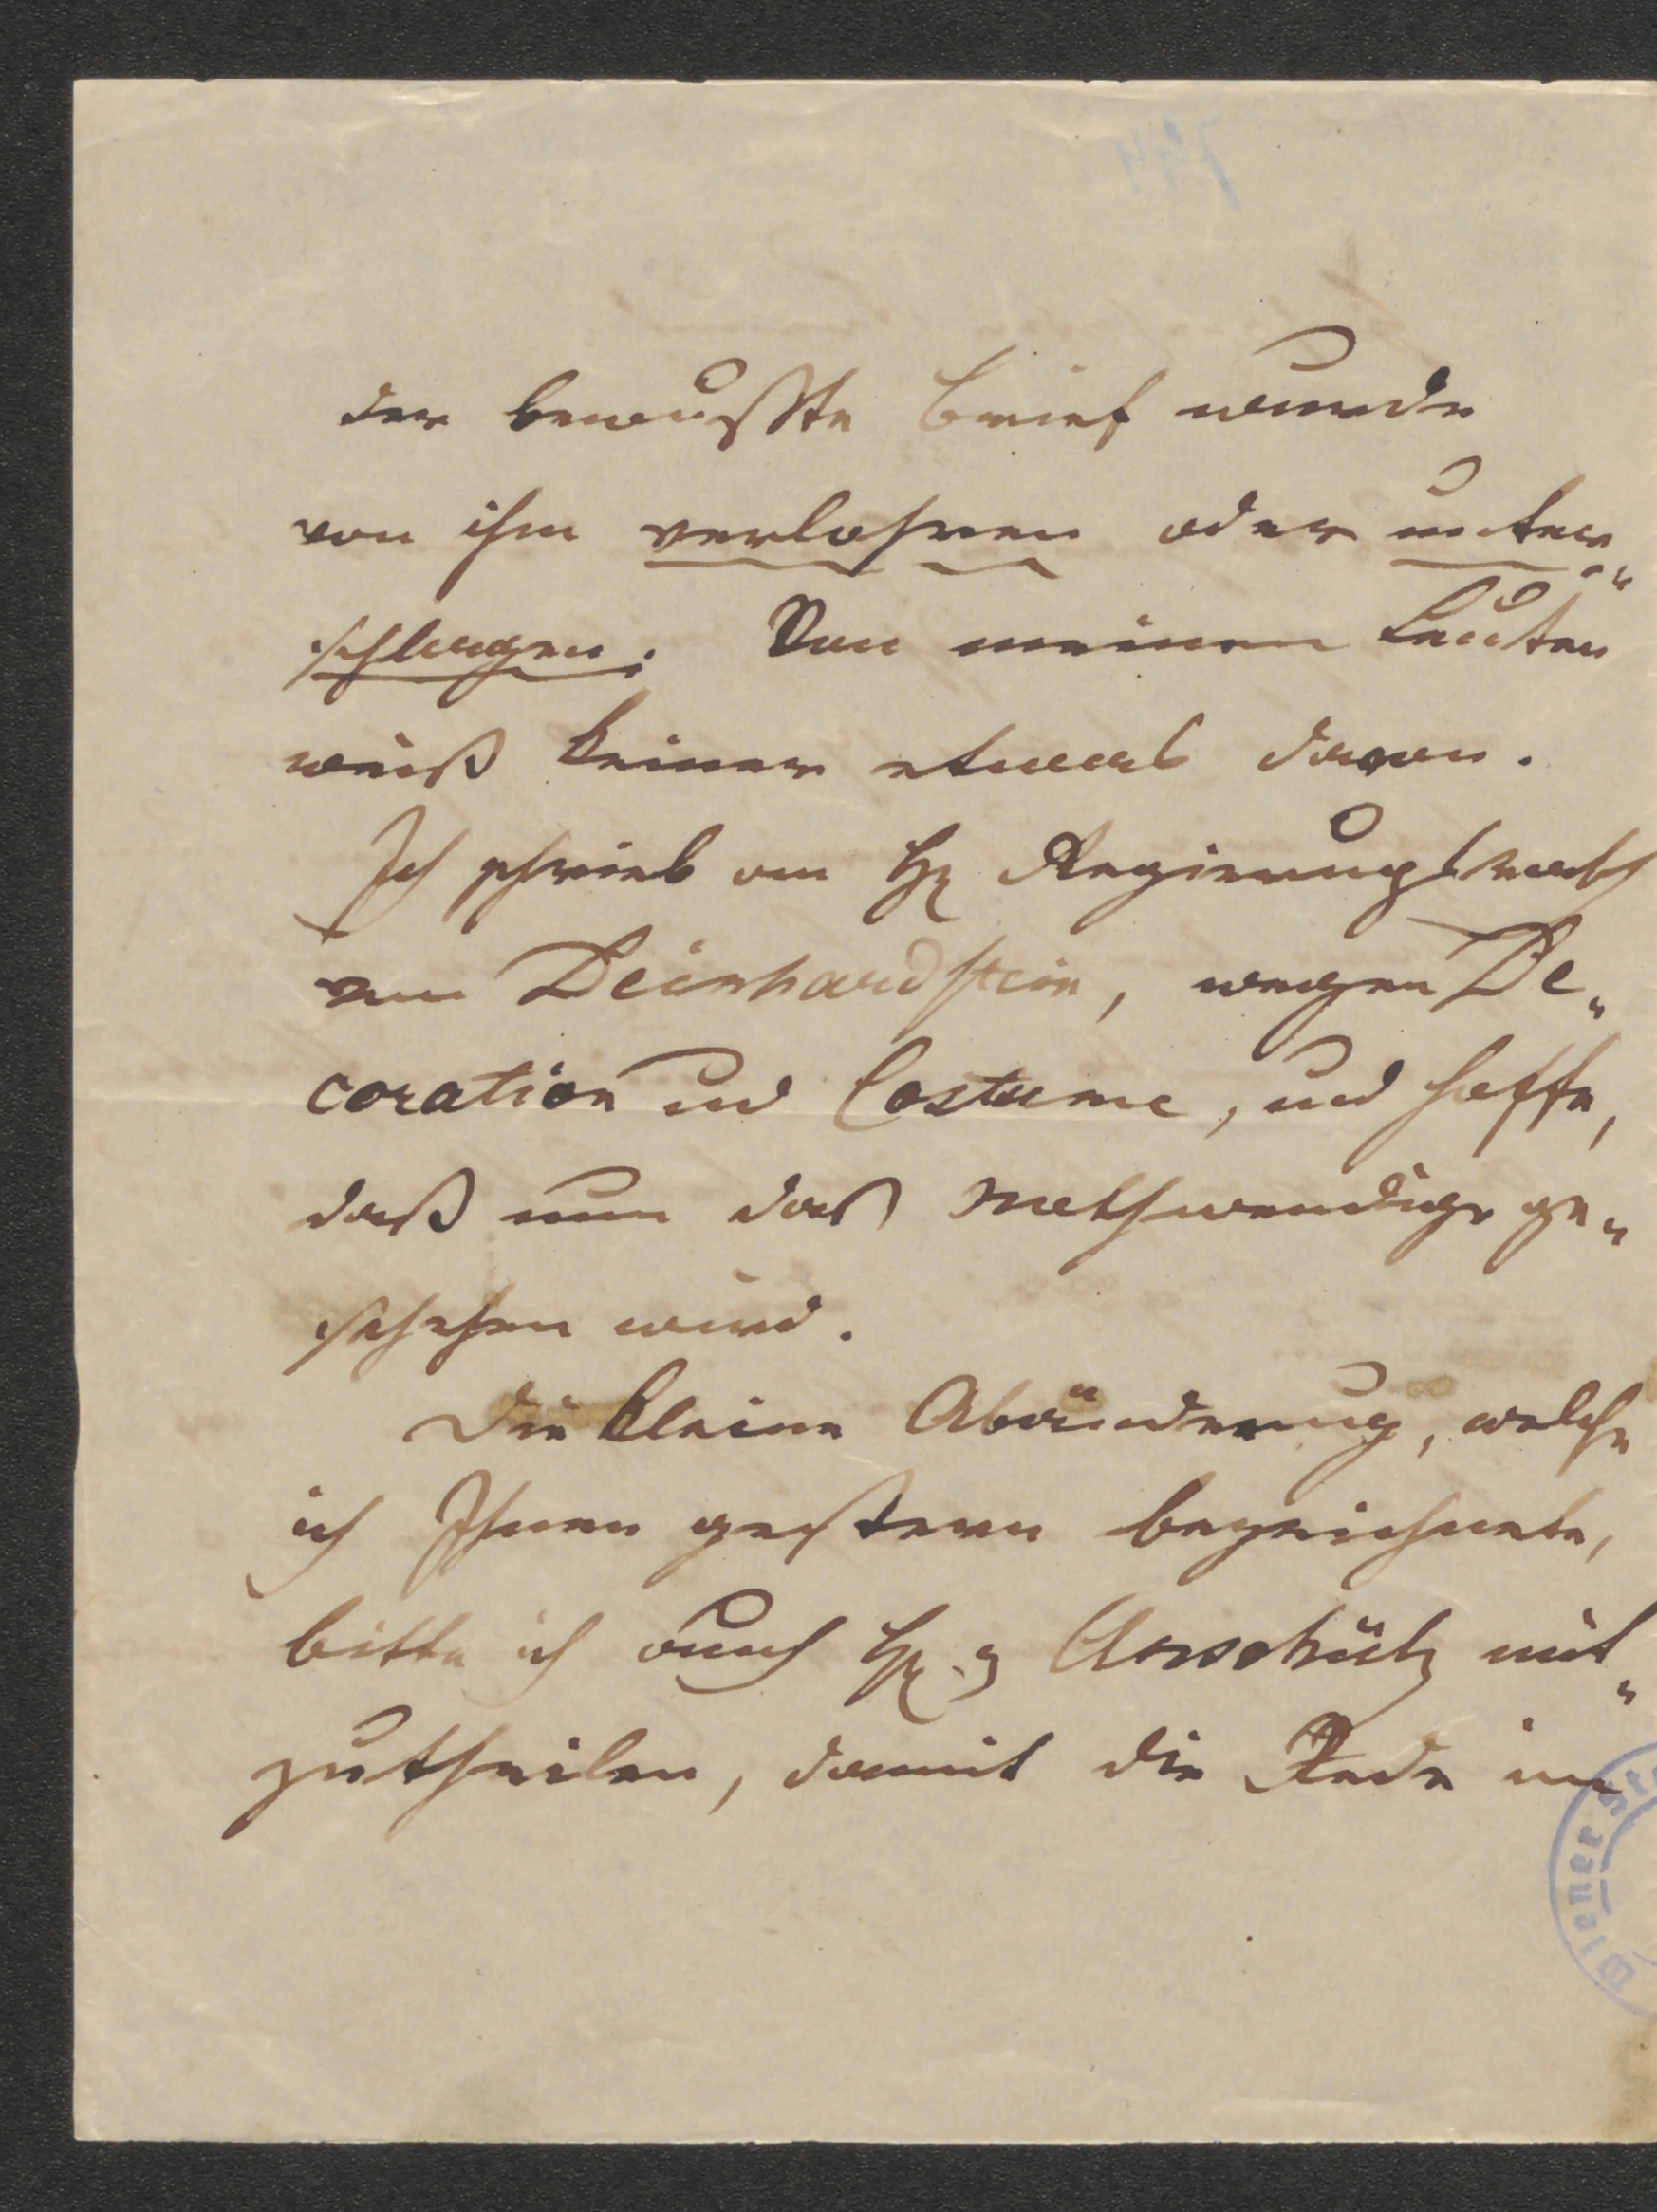 der bewußte Brief wurde
von ihm verlohren oder unter„
schlagen. Von meinen Leuten
weiß keiner etwas davon.
Ich schrieb an H Regierungsrath
von Deinhardstein, wegen De„
coration und Costume, und hoffe,
daß nun das Nothwendige ge„
schehen wird.
Die kleine Abänderung, welche
ich Ihnen gestern bezeichnete,
bitte ich auch H. Anschütz mit„
zutheilen, damit die Rede im
Wiener St